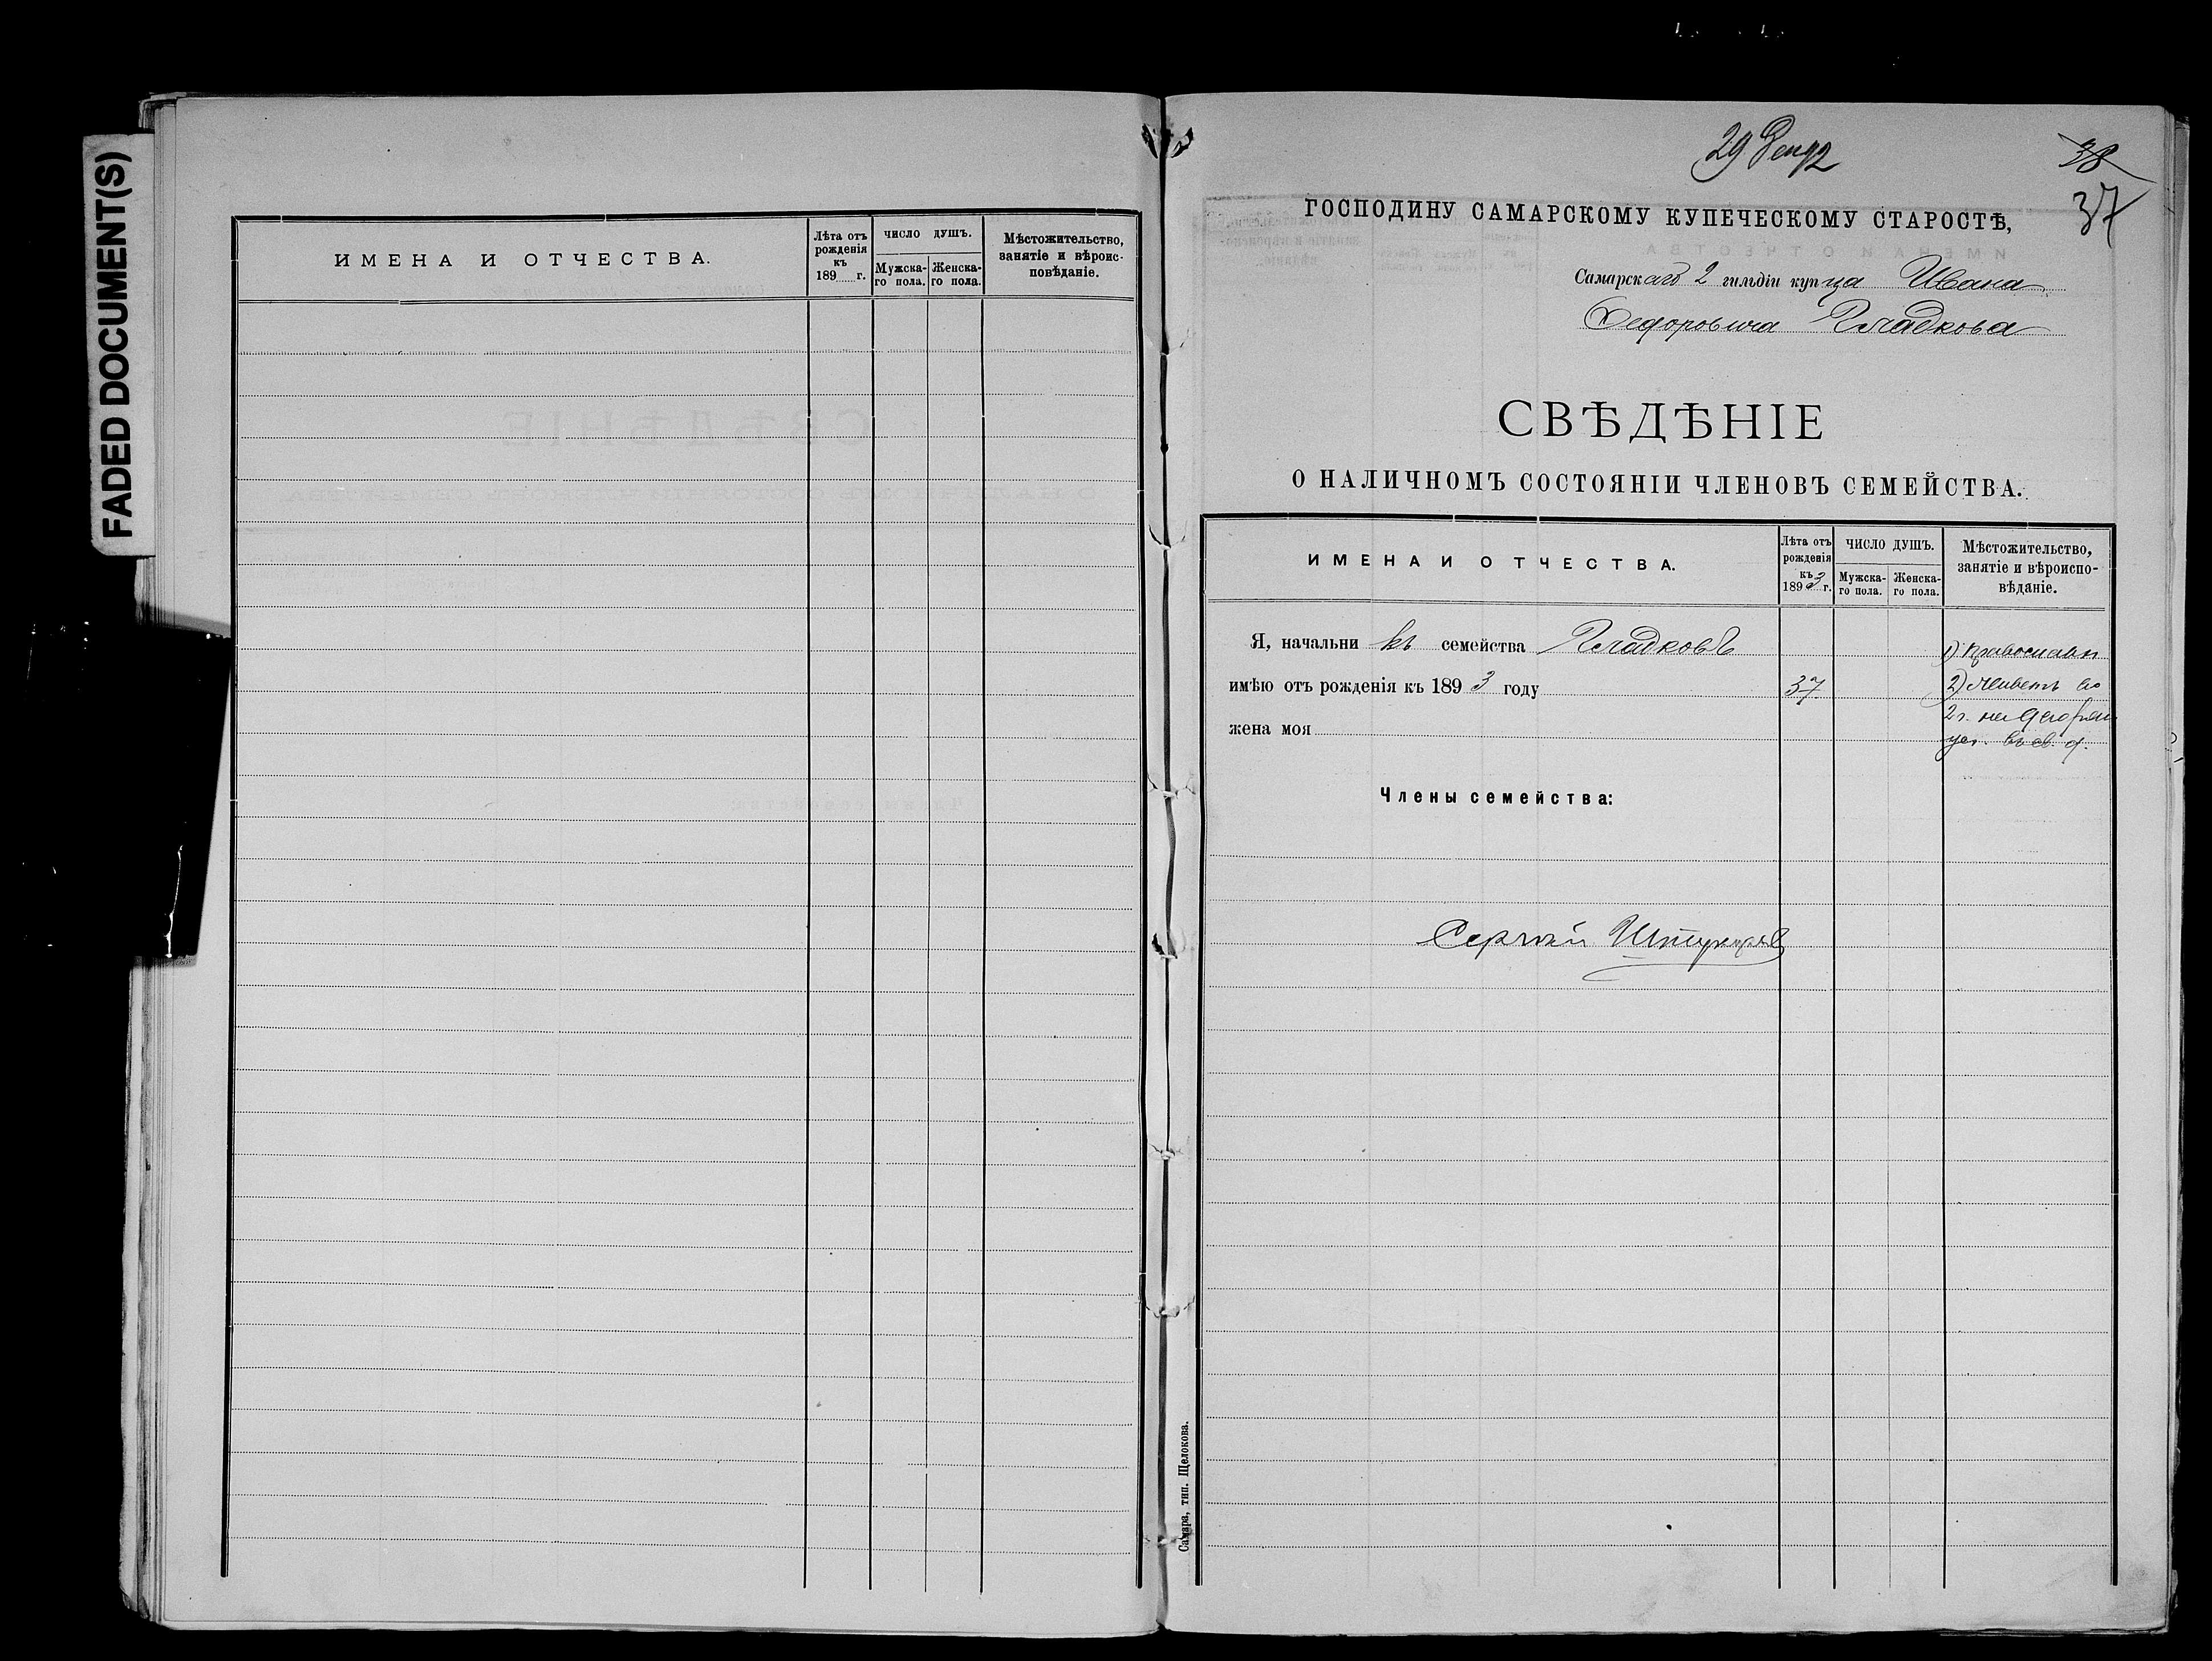 FADED DOCUMENT(S)
ИМЕНА И ОТЧЕСТВА.
Лѣта отъ рожденія къ 189 г.
ЧИСЛО ДУШЪ.
Мужска-го пола.
Женска-го пола.
Мѣстожительство,
занятіе и вѣроис-
повѣданіе.
29 92
38
37
ГОСПОДИНУ САМАРСКОМУ КУПЕЧЕСКОМУ СТАРОСТѢ,
Самарскаго 2 гильдіи купца Ивана
Федоровича Гладкова
СВѢДѢНІЕ
О НАЛИЧНОМЪ СОСТОЯНІИ ЧЛЕНОВЪ СЕМЕЙСТВА.
ИМЕНА И ОТЧЕСТВА.
Лѣта отъ рожденія къ 1893 г.
ЧИСЛО ДУШЪ.
Мужска-го пола.
Женска-го пола.
Мѣстожительство,
занятіе и вѣроиспо-
вѣданіе.
Я, начальникъ семейства Гладковъ
1) Православн
имѣю отъ рожденія къ 1893 году 37
2) Живетъ во
2 ч. на
жена моя
Члены семейства:
Сергѣй
Самара, тип. Щелокова.